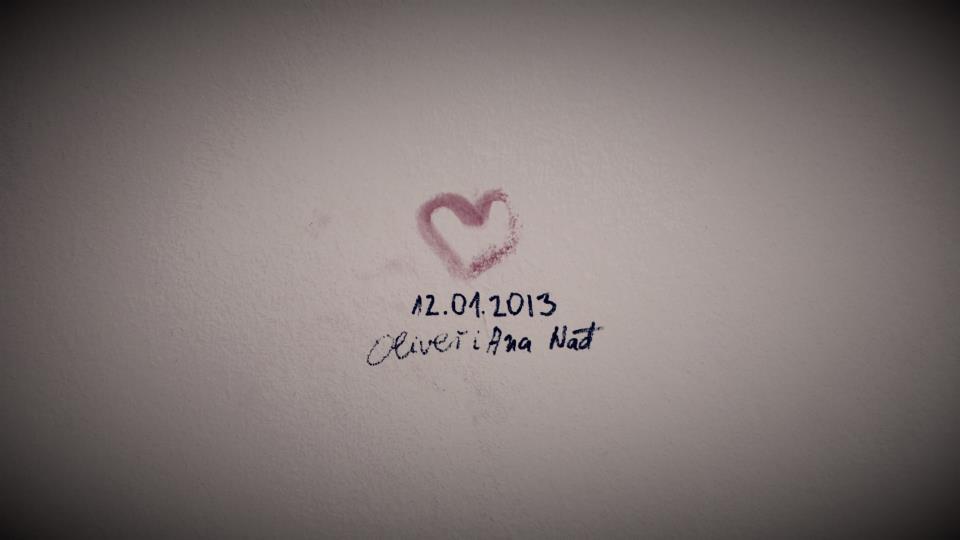 12.01.2013
Oliver i Ana Nađ